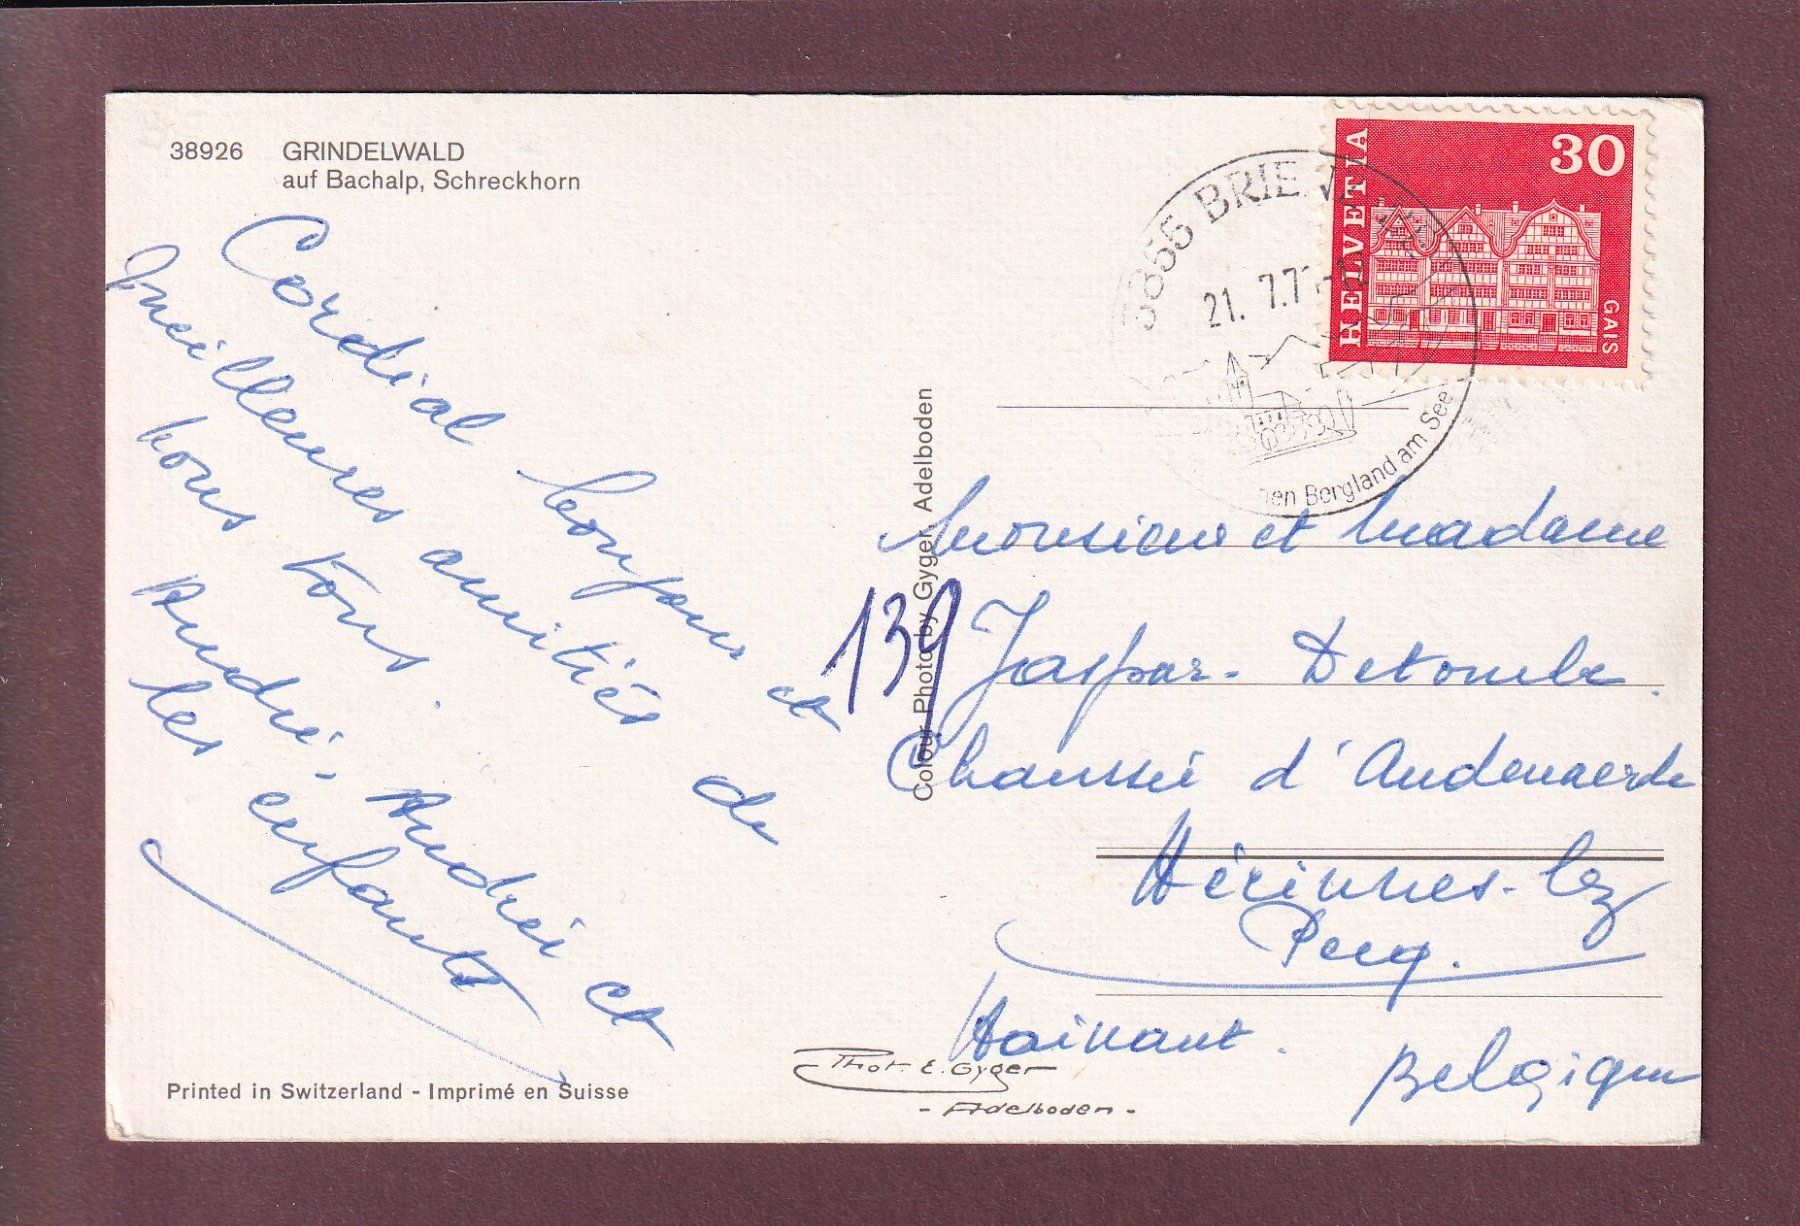 38926 GRINDELWALD
auf Bachalp, Schreckhorn
Cordial bonjour et
meilleures amitiés de
nous tous.
André, Andrée et
les enfants
Printed in Switzerland - Imprimé en Suisse
Colour Photo by Gyger, Adelboden
Phot. E. Gyger
- Adelboden -
3855 BRIENZ
21. 7.7
en Bergland am See
HELVETIA
30
GAIS
Monsieur et Madame
139 Jaspar-Detomble.
Chaussée d'Audenaerde
Hérinnes-lez
Pecq.
Hainaut.
Belgique